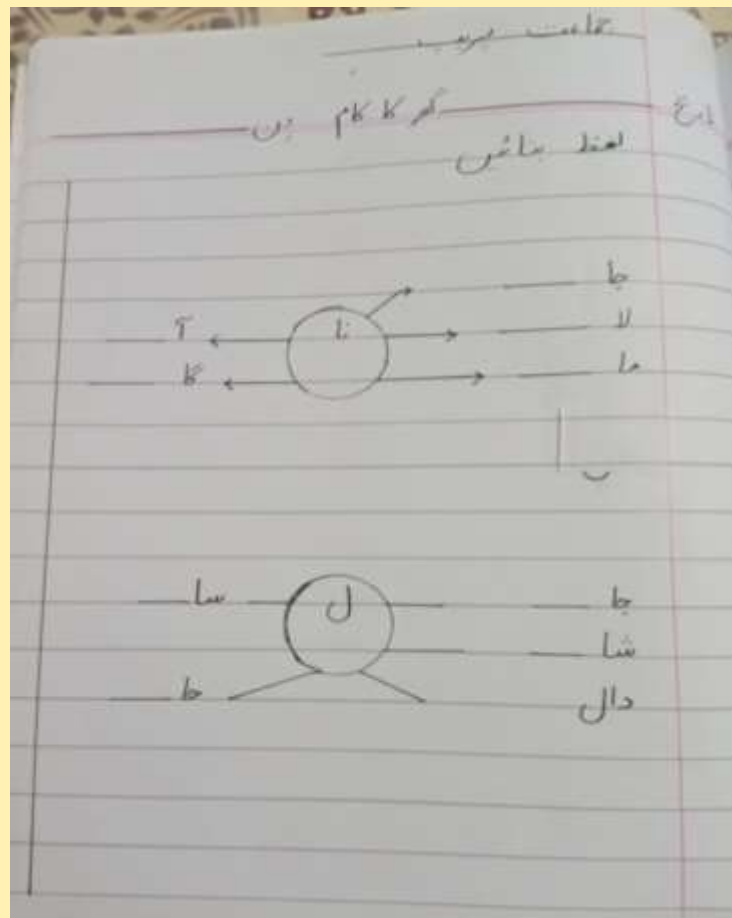 جماعت پریپ
تاریخ گھر کا کام دن
لفظ بنائیں
جا
نا
لا
آ
ما
گا
جا
ل
سا
شا
دال
حا